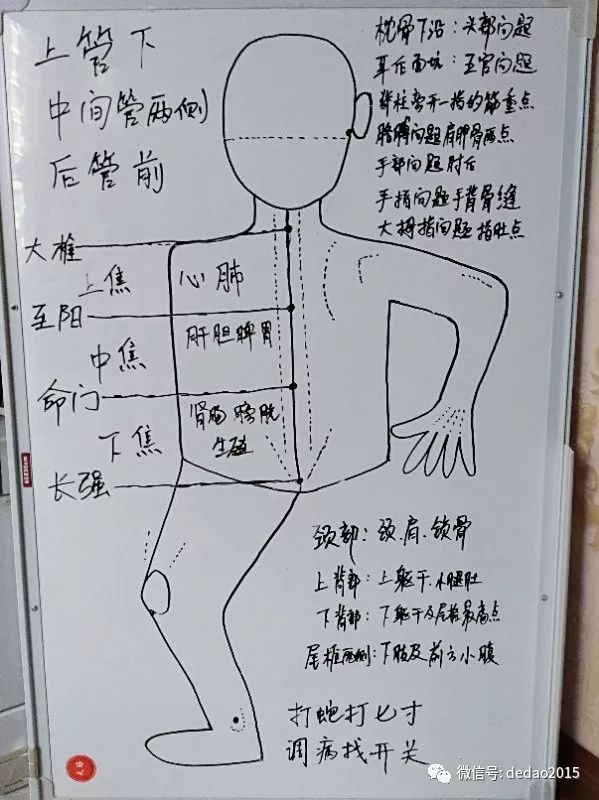 上管下
中间管两侧
后管前
枕骨下沿：头部问题
耳后面坑：五官问题
脊柱旁开一指的筋重点
胳膊问题肩胛骨两点
手部问题肘后
手指问题手背骨缝
大拇指问题 指肚点
大椎
上焦
心肺
至阳
中焦
肝胆脾胃
命门
下焦
肾 膀胱
生殖
长强
颈部：颈、肩、锁骨
上背部：上躯干、小腿肚
下背部：下躯干及尾椎最高点
尾椎两侧：下肢及前方小腹
打蛇打七寸
调病找开关
微信号: dedao2015